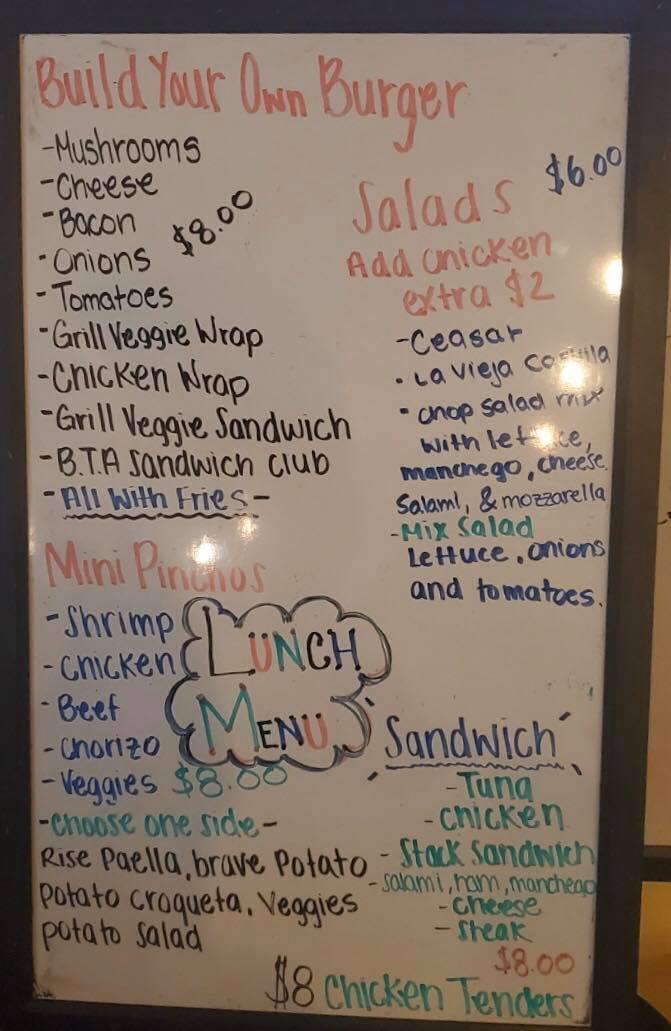 Build Your Own Burger
-Mushrooms
-Cheese
-Bacon
$8.00
-Onions
-Tomatoes
-Grill Veggie Wrap
-Chicken Wrap
-Grill Veggie Sandwich
-B.T.A Sandwich club
-All With Fries-
Mini Pinchos
-Shrimp
-Chicken
-Beef
-Chorizo
-Veggies $8.00
-Choose one side-
Rise Paella, brave Potato
Potato Croqueta, Veggies
potato salad
LUNCH
MENU
$6.00
Salads
Add chicken
extra $2
-Ceasar
• La Vieja
• Chop salad mix
with lettuce,
manchego, cheese,
Salami, & mozzarella
-Mix Salad
Lettuce, onions
and tomatoes.
Sandwich
-Tuna
-Chicken
-Stack Sandwich
-Salami, ham, manchego
-Cheese
-Steak
$8.00
$8 Chicken Tenders